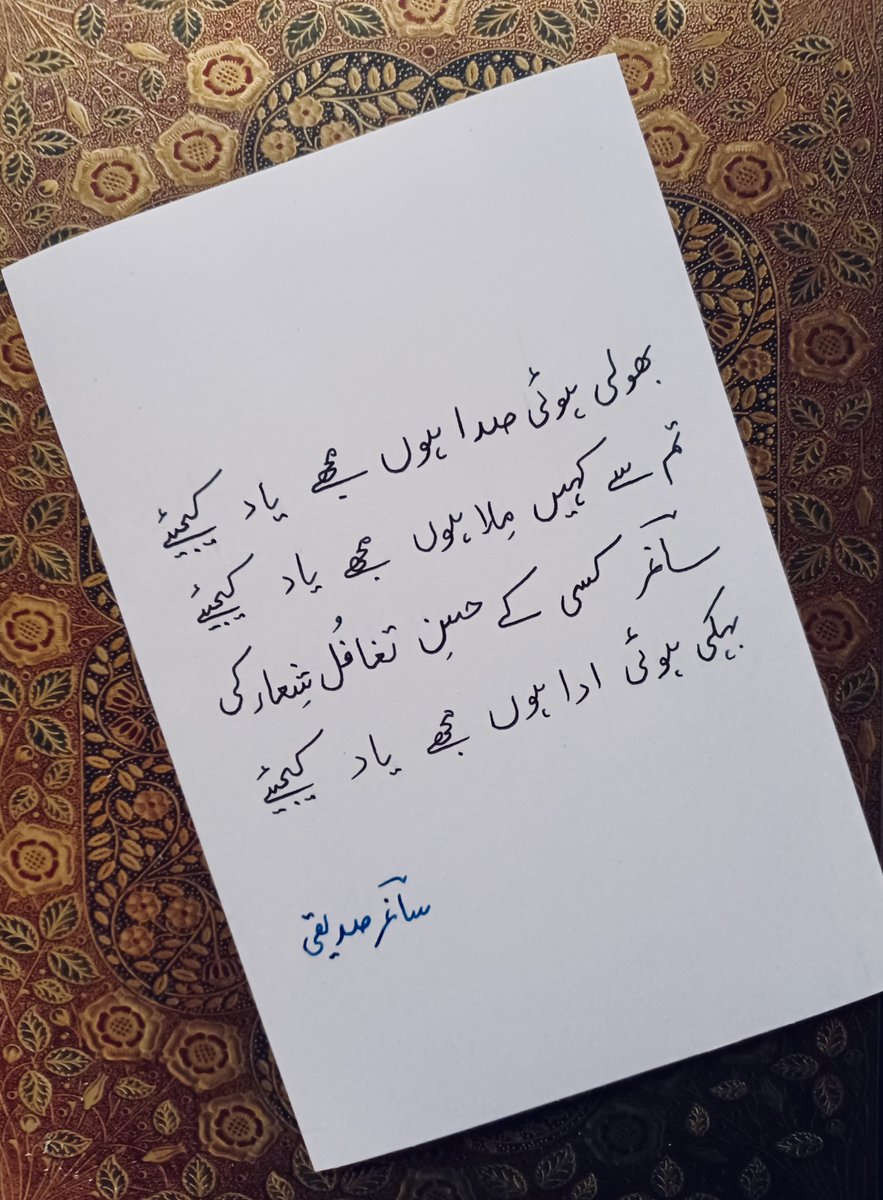 بھولی ہوئی صدا ہوں مجھے یاد کیجیئے
تم سے کہیں مِلا ہوں مجھے یاد کیجیئے
ساغر کسی کے حسنِ تغافُل شِعار کی
بہکی ہوئی ادا ہوں مجھے یاد کیجیئے
ساغر صدیقی